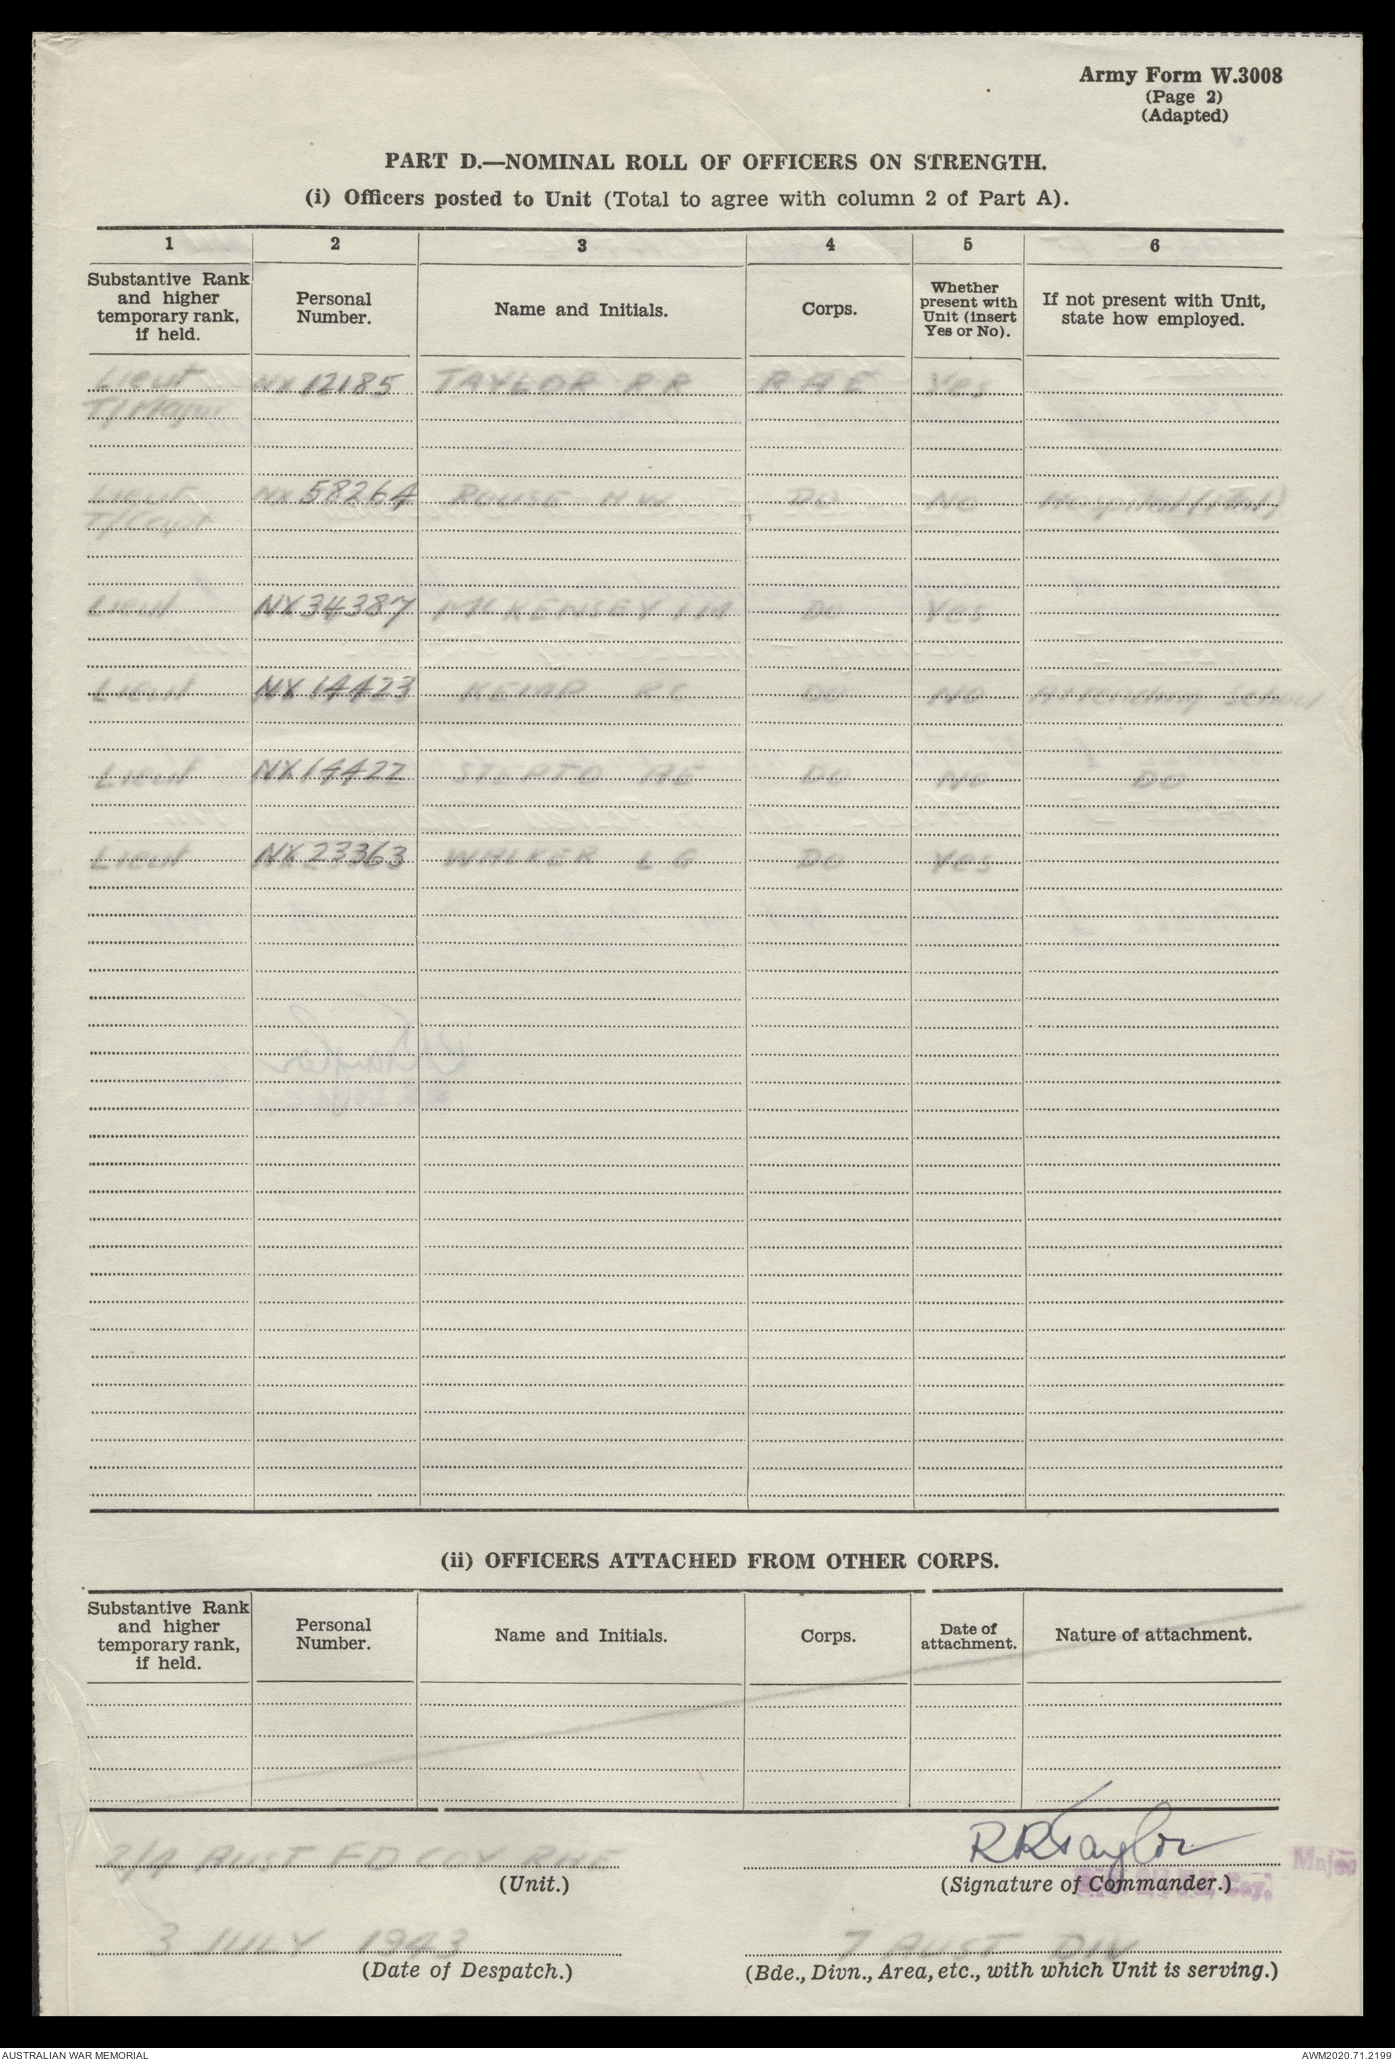 Army Form W.3008
(Page 2)
(Adapted)
PART D.—NOMINAL ROLL OF OFFICERS ON STRENGTH.
(i) Officers posted to Unit (Total to agree with column 2 of Part A).
1 2 3 4 5 6
Substantive Rank and higher temporary rank, if held. Personal Number. Name and Initials. Corps. Whether present with Unit (insert Yes or No). If not present with Unit, state how employed.
Lieut NX 12185 TAYLOR R R R A E Yes
T/Major
Lieut NX 58264 ROUSE H W DO NO Hospital
T/Capt
Lieut NX 34387 McKENSEY I M DO Yes
Lieut NX 14423 R C DO NO Attending School
Lieut NX 14422 STEPTO A E DO NO DO
Lieut NX 23363 WALKER L G DO Yes
(ii) OFFICERS ATTACHED FROM OTHER CORPS.
Substantive Rank and higher temporary rank, if held. Personal Number. Name and Initials. Corps. Date of attachment. Nature of attachment.
RR Taylor
2/4 AUST FD COY RAE Major
(Unit.) (Signature of Commander.) Coy.
3 JULY 1943 7 AUST DIV
(Date of Despatch.) (Bde., Divn., Area, etc., with which Unit is serving.)
AUSTRALIAN WAR MEMORIAL AWM2020.71.2199